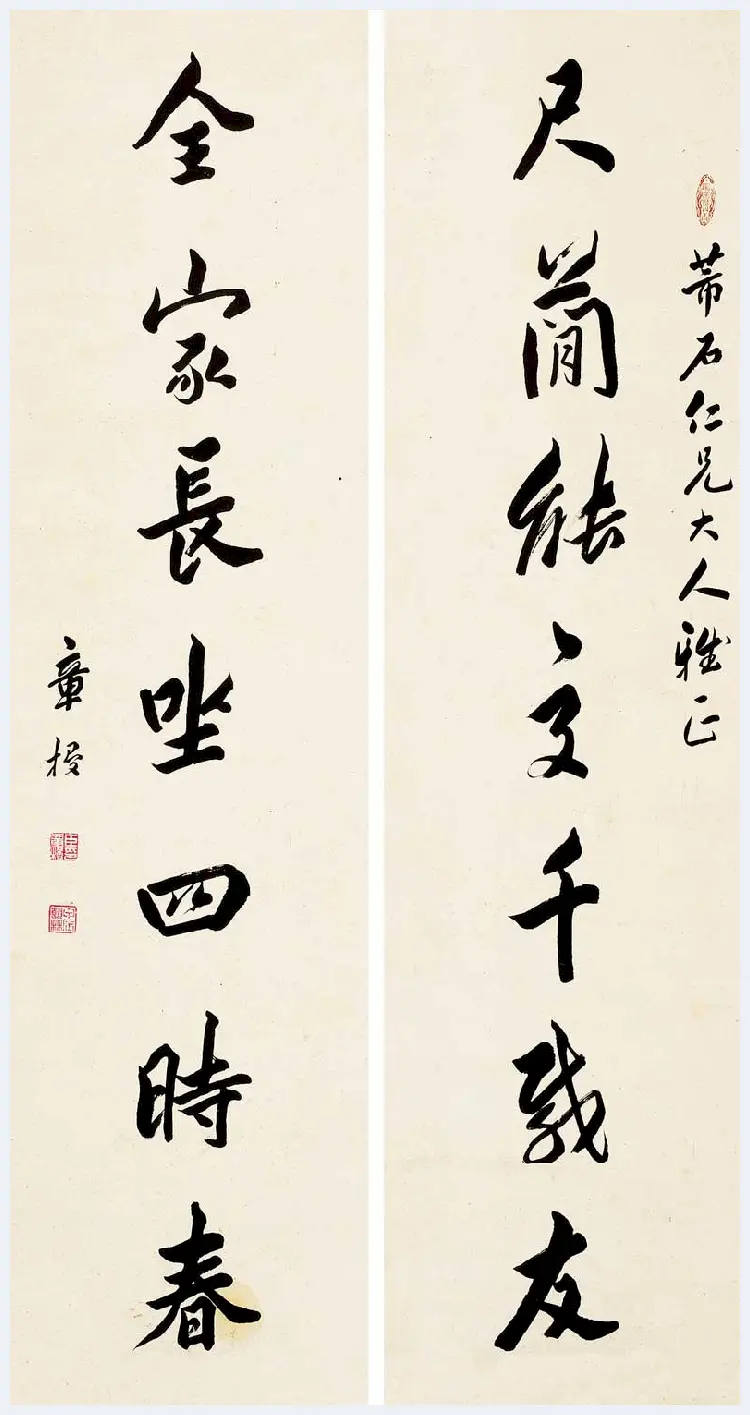 芾石仁兄大人雅正
尺簡能交千載友
全家長坐四時春
章梫